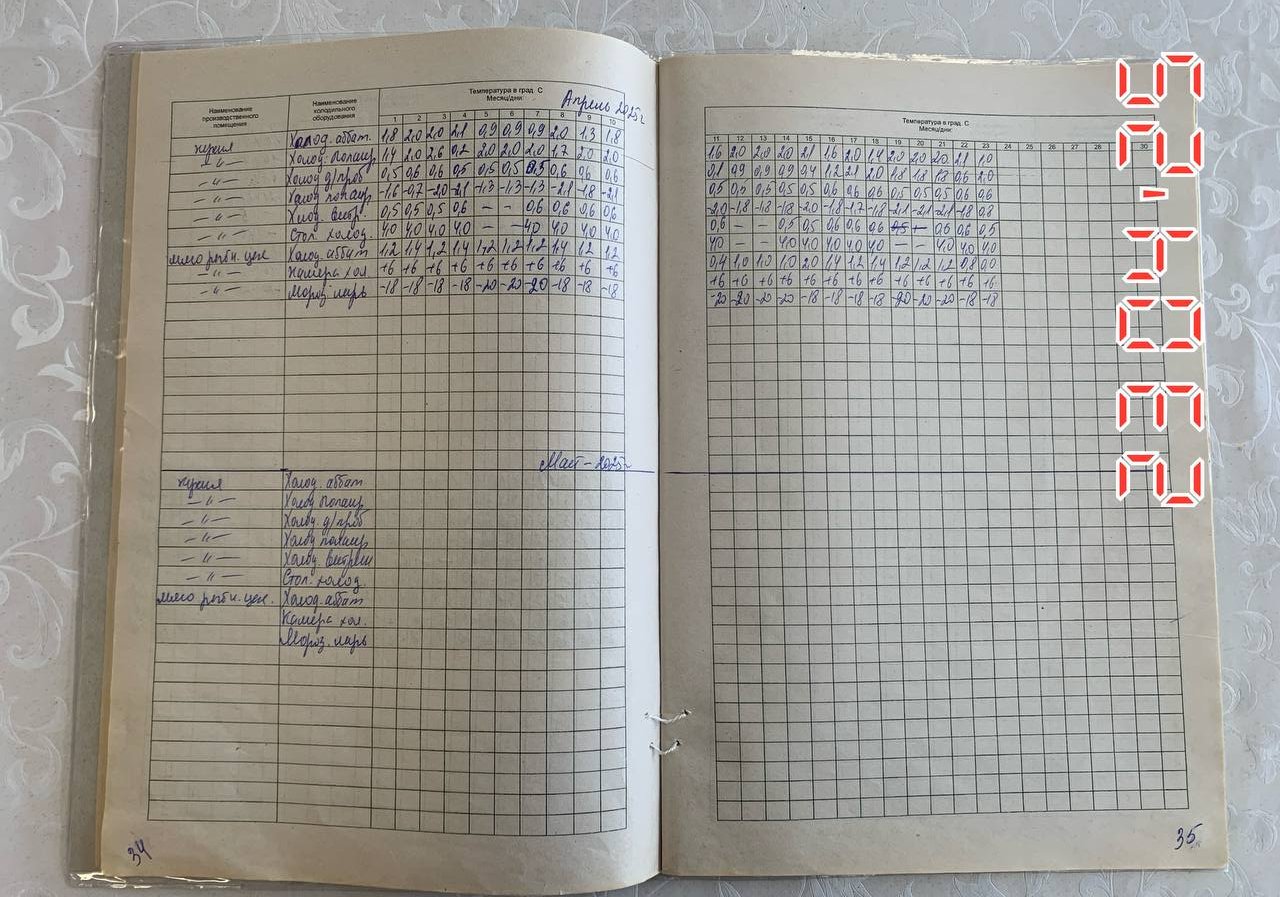 Наименование производственного помещения
Наименование холодильного оборудования
Температура в град. С
Месяц/дни
Апрель 2025г
1 2 3 4 5 6 7 8 9 10
кухня Холод. аббат. 1,8 2,0 2,0 2,1 0,9 0,9 0,9 2,0 1,3 1,8
–〃– Холод. 1,4 2,0 2,6 0,2 2,0 2,0 2,0 1,7 2,0 2,0
–〃– Холод д/проб 0,5 0,6 0,6 0,5 0,5 0,5 0,5 0,6 0,6 0,6
–〃– Холод -1,6 -0,2 -2,0 -2,1 -1,3 -1,3 -1,3 -2,1 -1,8 -2,1
–〃– Холод. витр. 0,5 0,5 0,5 0,6 – – 0,6 0,6 0,6 0,6
–〃– Стол. холод. 4,0 4,0 4,0 4,0 – – 4,0 4,0 4,0 4,0
мясо рыбн. цех Холод. аббат 1,2 1,4 1,2 1,4 1,2 1,2 1,2 1,4 1,2 1,2
–〃– Камера хол. +6 +6 +6 +6 +6 +6 +6 +6 +6 +6
–〃– Мороз. ларь -18 -18 -18 -18 -20 -20 -20 -18 -18 -18
Май – 2025г
кухня Холод. аббат
–〃– Холод
–〃– Холод. д/проб
–〃– Холод
–〃– Холод. витрин
–〃– Стол. холод.
мясо рыбн. цех. Холод. аббат
Камера хол.
Мороз. ларь
34
Температура в град. С
Месяц/дни
11 12 13 14 15 16 17 18 19 20 21 22 23 24 25 26 27 28 29 30
1,6 2,0 2,0 2,0 2,1 1,6 2,0 1,4 2,0 2,0 2,0 2,1 1,0
0,1 0,9 0,9 0,9 0,4 1,2 2,1 2,0 1,8 1,8 1,8 0,6 2,0
0,5 0,5 0,5 0,5 0,5 0,6 0,6 0,6 0,5 0,5 0,5 0,6 0,6
-2,0 -1,8 -1,8 -1,8 -2,0 -1,8 -1,7 -1,8 -2,1 -2,1 -2,1 -1,8 0,8
0,6 – – 0,5 0,5 0,6 0,6 0,6 – 0,6 0,6 0,5
4,0 – – 4,0 4,0 4,0 4,0 4,0 – – 4,0 4,0 4,0
0,4 1,0 1,0 1,0 2,0 1,4 1,2 1,4 1,2 1,2 1,2 0,8 0,0
+6 +6 +6 +6 +6 +6 +6 +6 +6 +6 +6 +6 +6
-20 -20 -20 -20 -18 -18 -18 -18 -20 -20 -20 -18 -18
35